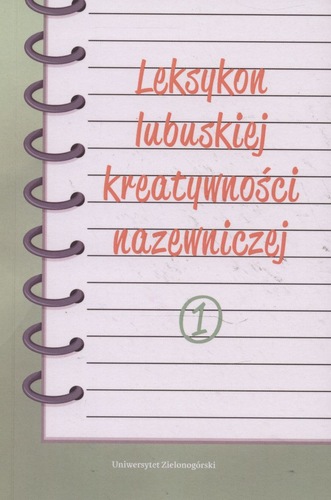 Leksykon
lubuskiej
kreatywności
nazewniczej
1
Uniwersytet Zielonogórski